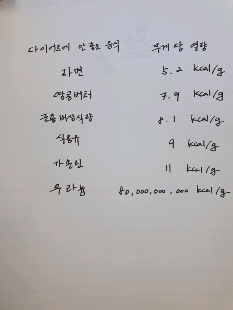 다이어트에 안 좋은 음식 무게 당 열량
라면 5.2 kcal/g
땅콩버터 7.9 kcal/g
군용 비상식량 8.1 kcal/g
식용유 9 kcal/g
가솔린 11 kcal/g
우라늄 80,000,000,000 kcal/g